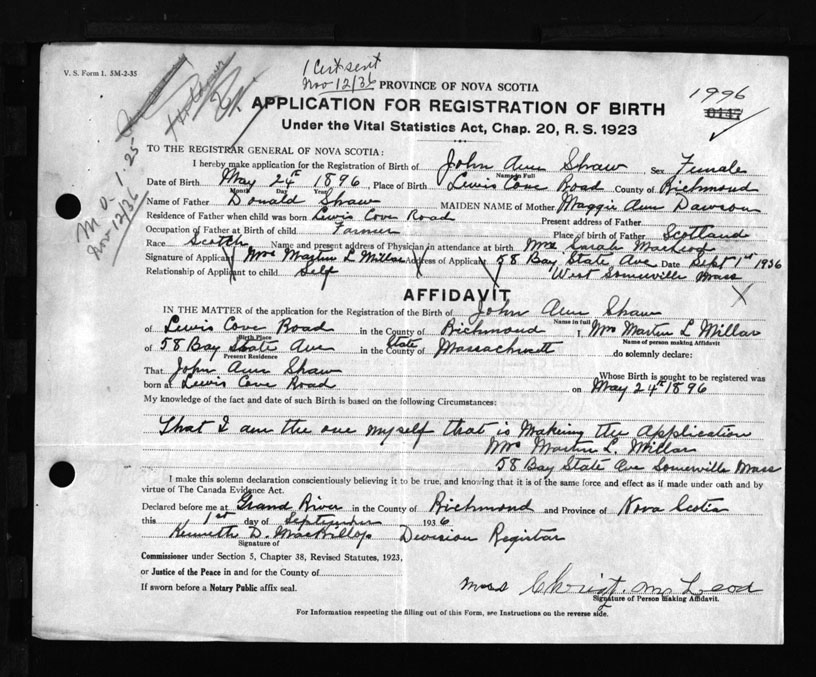 V. S. Form 1. 5M-2-35
1 Cert sent
Nov 12/36
PROVINCE OF NOVA SCOTIA
1996
APPLICATION FOR REGISTRATION OF BIRTH
Under the Vital Statistics Act, Chap. 20, R. S. 1923
M.O. 1.25
Nov 12/36
TO THE REGISTRAR GENERAL OF NOVA SCOTIA:
I hereby make application for the Registration of Birth of John Ann Shaw Sex Female
Name in Full
Date of Birth May 24th 1896, Place of Birth Lewis Cove Road County of Richmond
Month Day Year
Name of Father Donald Shaw MAIDEN NAME of Mother Maggie Ann Dawson
Residence of Father when child was born Lewis Cove Road Present address of Father
Occupation of Father at Birth of child Farmer Place of birth of Father Scotland
Race Scotch Name and present address of Physician in attendance at birth Mrs Sarah MacLeod
Signature of Applicant Mrs Martin L Millar Address of Applicant 58 Bay State Ave Date Sept 1st 1936
Relationship of Applicant to child Self West Somerville Mass
AFFIDAVIT
IN THE MATTER of the application for the Registration of the Birth of John Ann Shaw
Name in full
of Lewis Cove Road in the County of Richmond I, Mrs Martin L Millar
Birth Place Name of person making Affidavit
of 58 Bay State Ave in the County of State Massachusett do solemnly declare:
Present Residence
That John Ann Shaw Whose Birth is sought to be registered was
born at Lewis Cove Road on May 24th 1896
My knowledge of the fact and date of such Birth is based on the following Circumstances:
That I am the one myself that is making the application
Mrs Martin L. Millar
58 Bay State Ave Somerville Mass
I make this solemn declaration conscientiously believing it to be true, and knowing that it is of the same force and effect as if made under oath and by
virtue of The Canada Evidence Act.
Declared before me at Grand River in the County of Richmond and Province of Nova Scotia
this 1st day of September 1936
Kenneth D. MacKillop Division Registrar
Signature of
Commissioner under Section 5, Chapter 38, Revised Statutes, 1923,
or Justice of the Peace in and for the County of
If sworn before a Notary Public affix seal.
Christ. McLeod
Signature of Person making Affidavit.
For Information respecting the filling out of this Form, see Instructions on the reverse side.